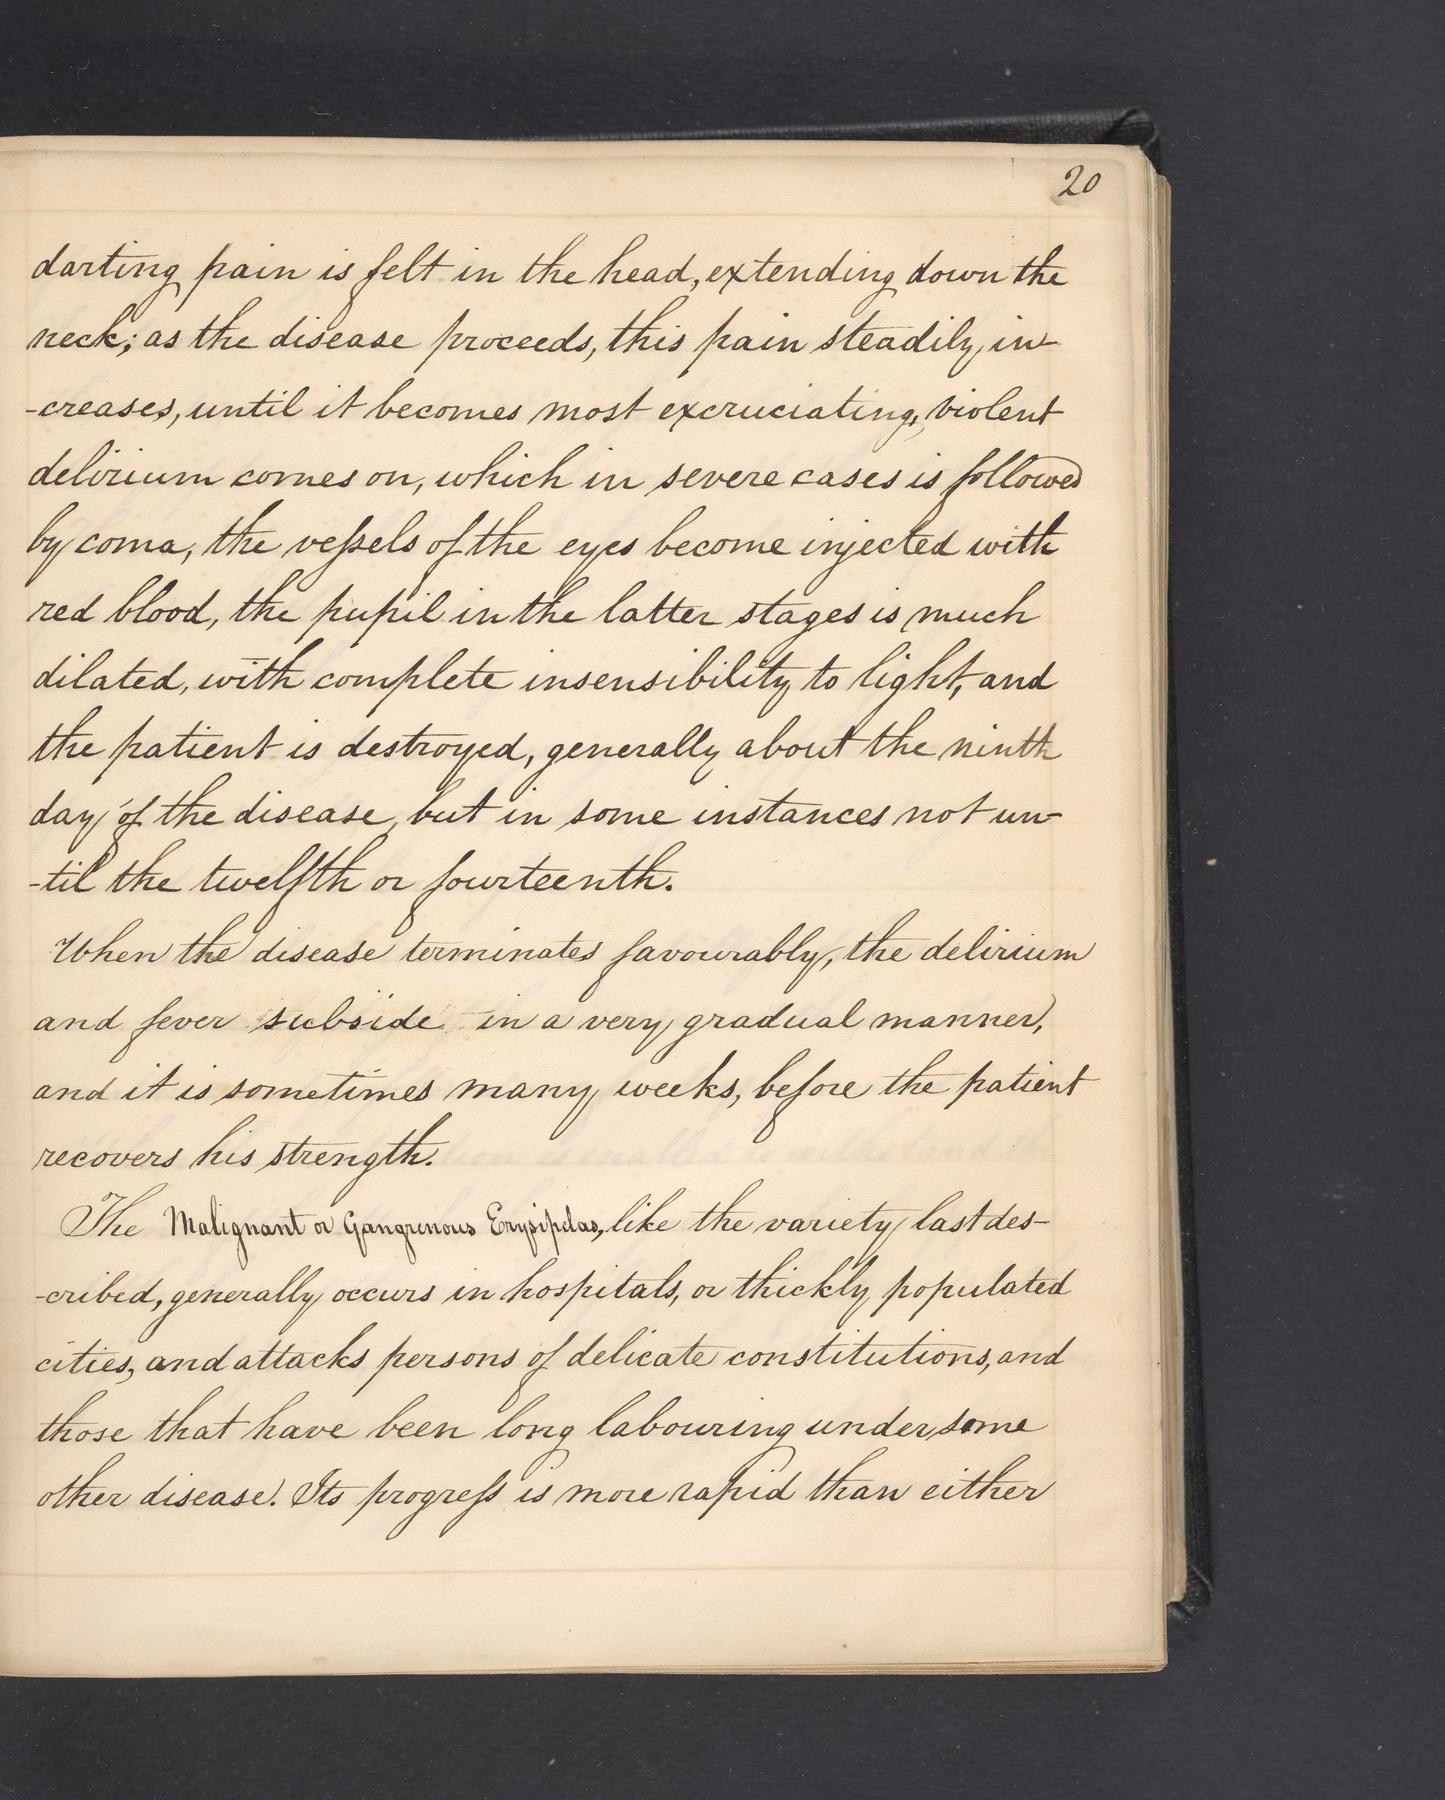 20
darting pain is felt in the head, extending down the
neck; as the disease proceeds, this pain steadily in-
-creases, until it becomes most excruciating, violent
delirium comes on, which in severe cases is followed
by coma, the veſsels of the eyes become injected with
red blood, the pupil in the latter stages is much
dilated, with complete insensibility to light, and
the patient is destroyed, generally about the ninth
day of the disease, but in some instances not un-
-til the twelfth or fourteenth.
When the disease terminates favourably, the delirium
and fever subside in a very gradual manner,
and it is sometimes many weeks, before the patient
recovers his strength.
The Malignant or Gangrenous Erysipelas, like the variety last des-
-cribed, generally occurs in hospitals, or thickly populated
cities, and attacks persons of delicate constitutions, and
those that have been long labouring under some
other disease. Its progreſs is more rapid than either